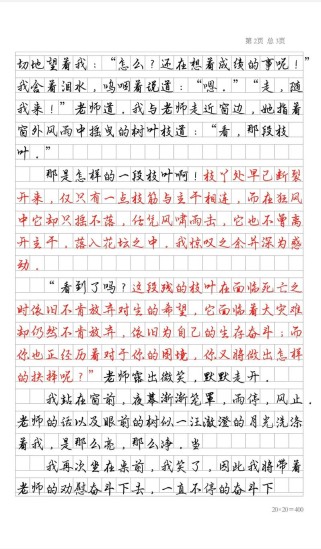 第2页 总3页
切地望着我：“怎么？还在想着成绩的事呢！”
我含着泪水，呜咽着说道：“嗯．”“走，随
我来！”老师道．我与老师走近窗边，她指着
窗外风雨中摇曳的树叶枝道：“看，那段枝
叶．”
那是怎样的一段枝叶啊！枝丫处早已断裂
开来，仅只有一点枝筋与主干相连，而在狂风
中它却只摇不落，任凭风啸雨击，它也不曾离
开主干，落入花坛之中，我惊叹之余并深为感
动．
“看到了吗？这段残的枝叶在面临死亡之
时依旧不肯放弃对生的希望，它面临着大灾难
却仍然不肯放弃，依旧为自己的生存奋斗；而
你也正经历着对于你的困境，你又将做出怎样
的抉择呢？”老师露出微笑，默默走开．
我站在窗前，夜幕渐渐笼罩，雨停，风止．
老师的话以及眼前的树似一汪澈澄的月光洗涤
着我，是那么亮，那么净．当
我再次坐在桌前，我笑了，因此我将带着
老师的劝慰奋斗下去，一直不停的奋斗下
20×20=400